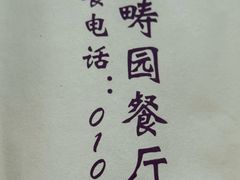 畴园餐厅
电话：010